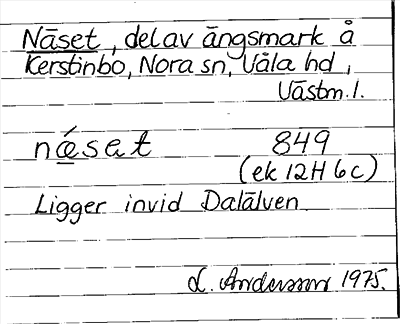 Näset, del av ängsmark å
Kerstinbo, Nora sn, Våla hd,
Västm. l.
nǽset 849
(ek 12H 6c)
Ligger invid Dalälven.
L. Andersson 1975.